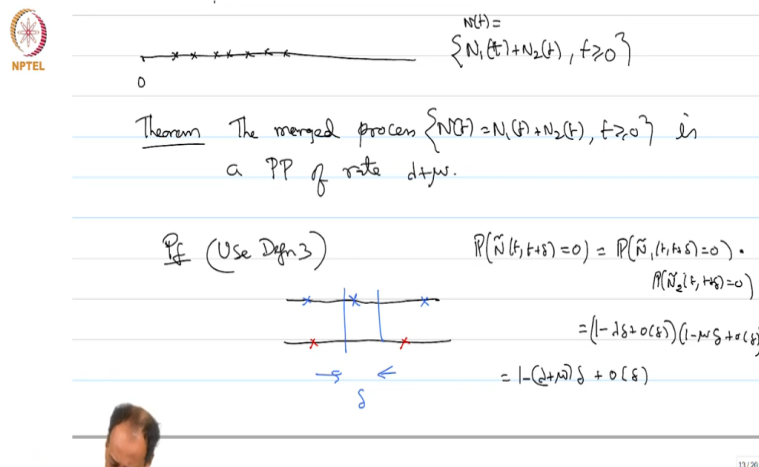 NPTEL
N(t) =
{N₁(t)+N₂(t), t≥0}
0
Theorem The merged process {N(t) = N₁(t)+N₂(t), t≥0} is
a PP of rate λ+μ.
Pf (Use Defn 3)
P(Ñ(t,t+δ)=0) = P(Ñ₁(t,t+δ)=0) ·
P(Ñ₂(t,t+δ)=0)
=(1-λδ+o(δ))(1-μδ+o(δ)
= 1-(λ+μ)δ + o(δ)
δ
13/20